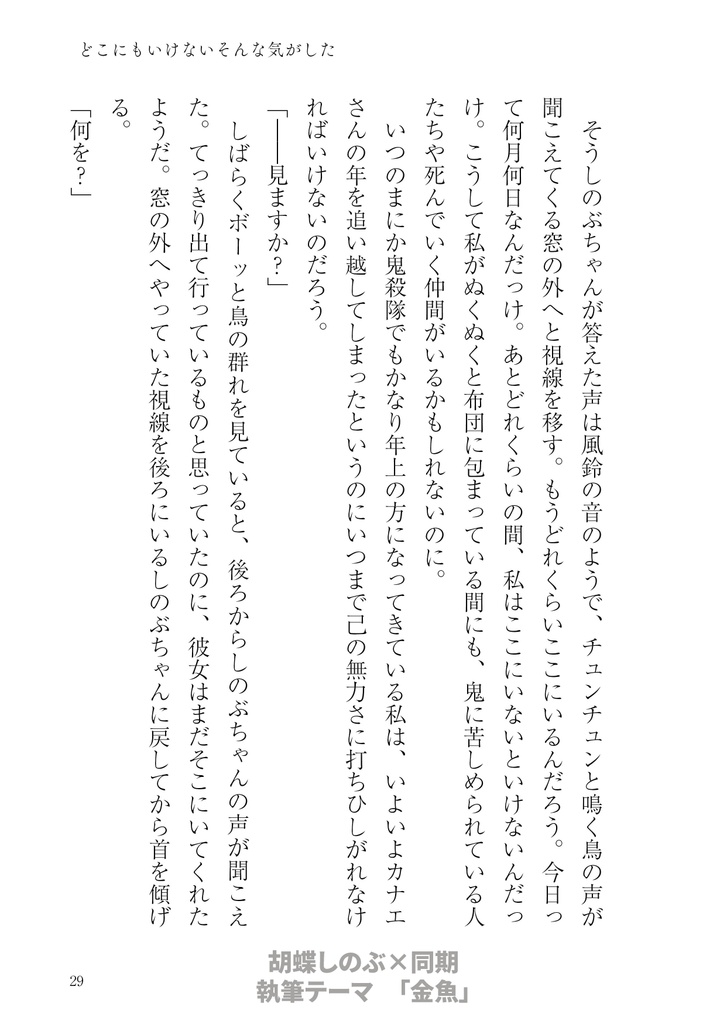 どこにもいけないそんな気がした
そうしのぶちゃんが答えた声は風鈴の音のようで、チュンチュンと鳴く鳥の声が
聞こえてくる窓の外へと視線を移す。もうどれくらいここにいるんだろう。今日っ
て何月何日なんだっけ。あとどれくらいの間、私はここにいないといけないんだっ
け。こうして私がぬくぬくと布団に包まっている間にも、鬼に苦しめられている人
たちや死んでいく仲間がいるかもしれないのに。
いつのまにか鬼殺隊でもかなり年上の方になってきている私は、いよいよカナエ
さんの年を追い越してしまったというのにいつまで己の無力さに打ちひしがれなけ
ればいけないのだろう。
「――見ますか？」
しばらくボーッと鳥の群れを見ていると、後ろからしのぶちゃんの声が聞こえ
た。てっきり出て行っているものと思っていたのに、彼女はまだそこにいてくれた
ようだ。窓の外へやっていた視線を後ろにいるしのぶちゃんに戻してから首を傾げ
る。
「何を？」
胡蝶しのぶ×同期
執筆テーマ　「金魚」
29